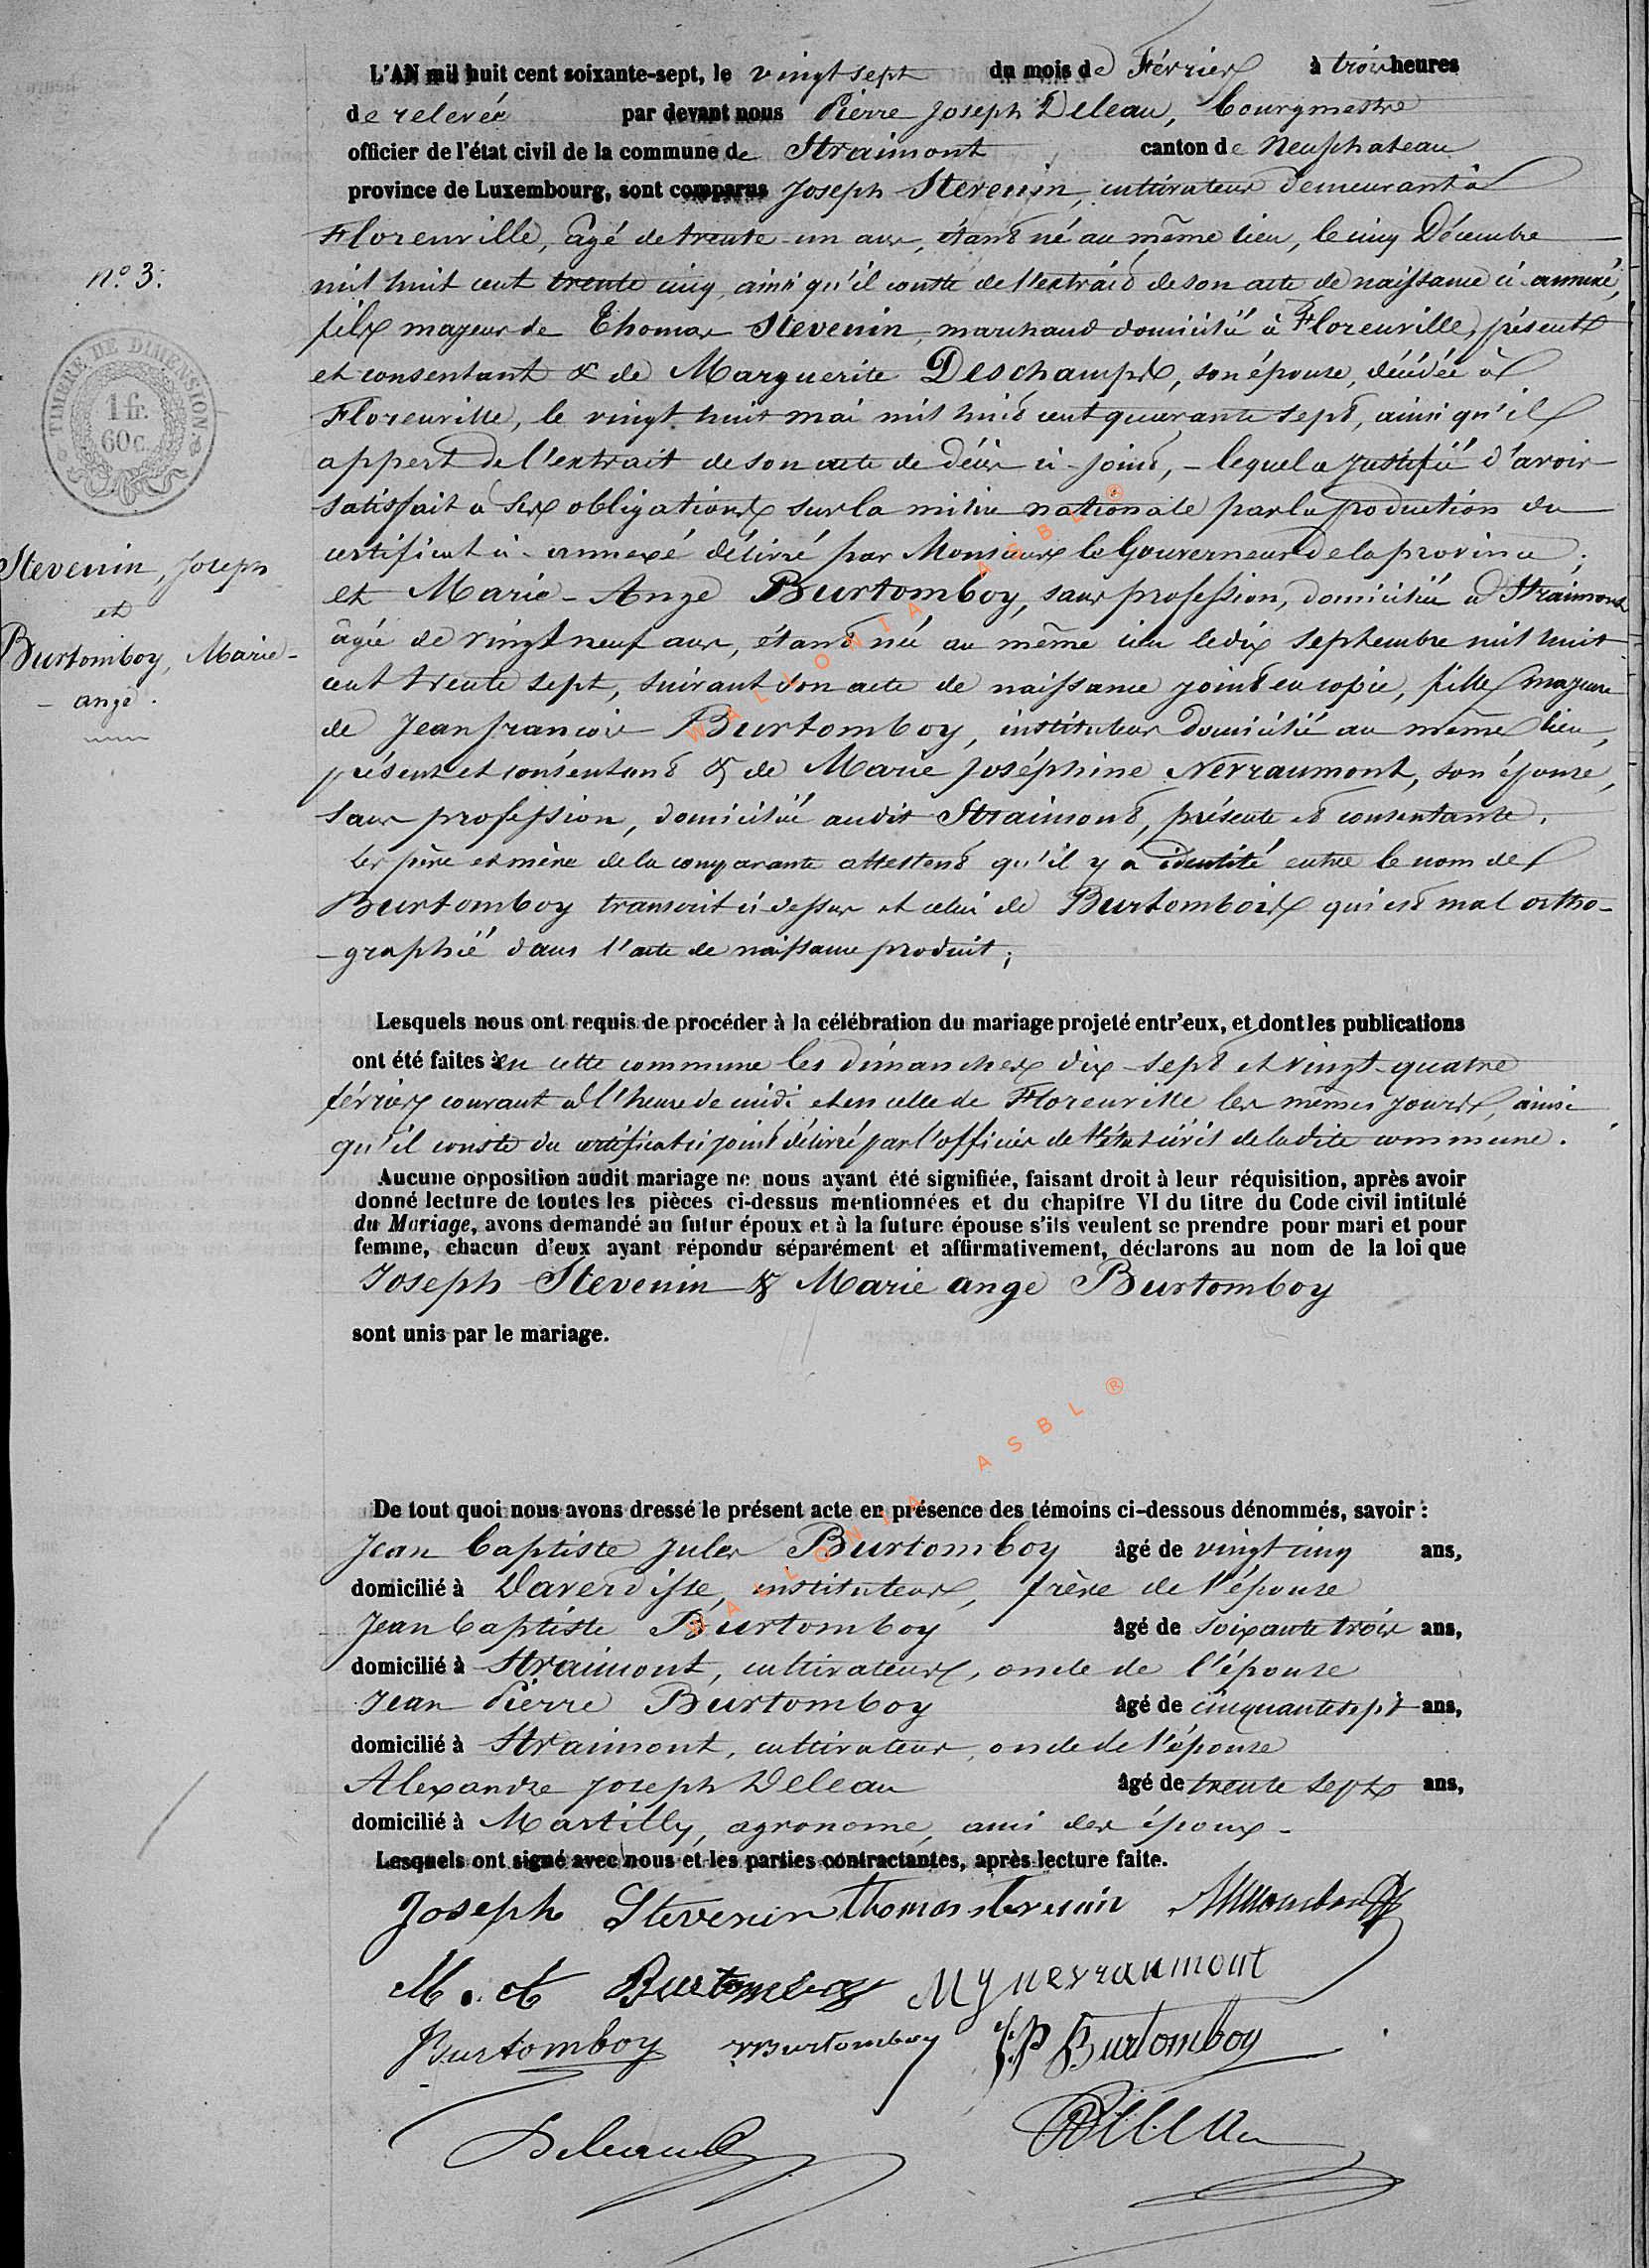 L'AN mil huit cent soixante-sept, le vingt sept du mois de Février à trois heures
de relevée par devant nous Pierre Joseph Deleau, bourgmestre
officier de l'état civil de la commune de Straimont canton de Neufchateau
province de Luxembourg, sont comparus Joseph Stevenin, cultivateur demeurant à
Florenville, âgé de trente-un ans, étant né au même lieu, le cinq Décembre
mil huit cent trente cinq, ainsi qu'il conste de l'extrait de son acte de naissance ci-annexé,
fils majeur de Thomas Stevenin, marchand domicilié à Florenville, présent
et consentant & de Marguerite Deschamps, son épouse, décédée à
Florenville, le vingt huit mai mil huit cent quarante sept, ainsi qu'il
appert de l'extrait de son acte de décès ci-joint, - lequel a justifié d'avoir
satisfait à ses obligations sur la milice nationale par la production du
certificat ci-annexé délivré par Monsieur le Gouverneur de la province;
et Marie-Ange Burtomboy, sans profession, domiciliée à Straimont
âgée de vingt neuf ans, étant née au même lieu le dix septembre mil huit
cent trente sept, suivant son acte de naissance joint en copie, fille majeure
de Jean françois Burtomboy, instituteur domicilié au même lieu,
présent et consentant & de Marie Joséphine Nevraumont, son épouse,
sans profession, domiciliée audit Straimont, présente et consentante.
Les père et mère de la comparante attestent qu'il y a identité entre le nom de
Burtomboy transcrit ci-dessus et celui de Burtombois qui est mal ortho-
-graphié dans l'acte de naissance produit;
n° 3:
TIMBRE DE DIMENSION.
1 fr.
60 c.
Stevenin, Joseph
et
Burtomboy, Marie-
- ange.
Lesquels nous ont requis de procéder à la célébration du mariage projeté entr'eux, et dont les publications
ont été faites en cette commune les dimanches dix-sept et vingt-quatre
février courant à l'heure de midi et en celle de Florenville les mêmes jours, ainsi
qu'il conste du certificat ci joint délivré par l'officier de l'état civil de ladite commune.
Aucune opposition audit mariage ne nous ayant été signifiée, faisant droit à leur réquisition, après avoir
donné lecture de toutes les pièces ci-dessus mentionnées et du chapitre VI du titre du Code civil intitulé
du Mariage, avons demandé au futur époux et à la future épouse s'ils veulent se prendre pour mari et pour
femme, chacun d'eux ayant répondu séparément et affirmativement, déclarons au nom de la loi que
Joseph Stevenin & Marie ange Burtomboy
sont unis par le mariage.
De tout quoi nous avons dressé le présent acte en présence des témoins ci-dessous dénommés, savoir :
Jean baptiste Jules Burtomboy âgé de vingt cinq ans,
domicilié à Daverdisse, instituteur, frère de l'épouse
Jean baptiste Burtomboy âgé de soixante trois ans,
domicilié à Straimont, cultivateur, oncle de l'épouse
Jean Pierre Burtomboy âgé de cinquante sept ans,
domicilié à Straimont, cultivateur, oncle de l'épouse
Alexandre Joseph Deleau âgé de trente sept ans,
domicilié à Martilly, agronome, ami des époux -
Lesquels ont signé avec nous et les parties contractantes, après lecture faite.
Joseph Stevenin Thomas stevenin
M. A Burtomboy MJ nevraumont
Burtomboy Burtomboy J.P Burtomboy
Deleau
WALLONIA ASBL ®
WALLONIA ASBL ®